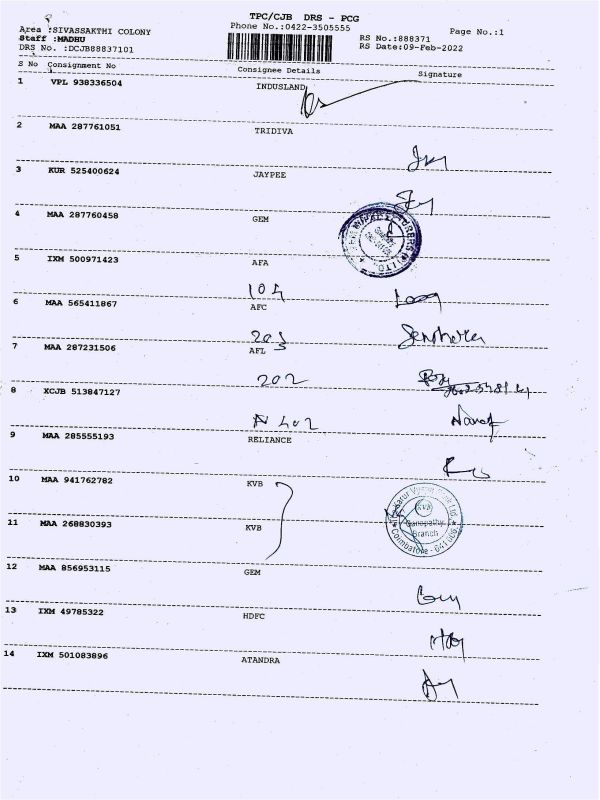 TPC/CJB DRS - PCG
Area :SIVASSAKTHI COLONY Phone No.:0422-3505555 Page No.:1
Staff :MADHU RS No.:888371
DRS No. :DCJB88837101 RS Date:09-Feb-2022
S No Consignment No Consignee Details Signature
1 VPL 938336504 INDUSLAND
2 MAA 287761051 TRIDIVA
3 KUR 525400624 JAYPEE
4 MAA 287760458 GEM
5 IXM 500971423 AFA
104
6 MAA 565411867 AFC
203
7 MAA 287231506 AFL
202
8 XCJB 513847127
N 402
9 MAA 285555193 RELIANCE
10 MAA 941762782 KVB
KVB
Ganapathy
Branch
Coimbatore - 641 006
11 MAA 268830393 KVB
12 MAA 856953115 GEM
13 IXM 49785322 HDFC
14 IXM 501083896 ATANDRA